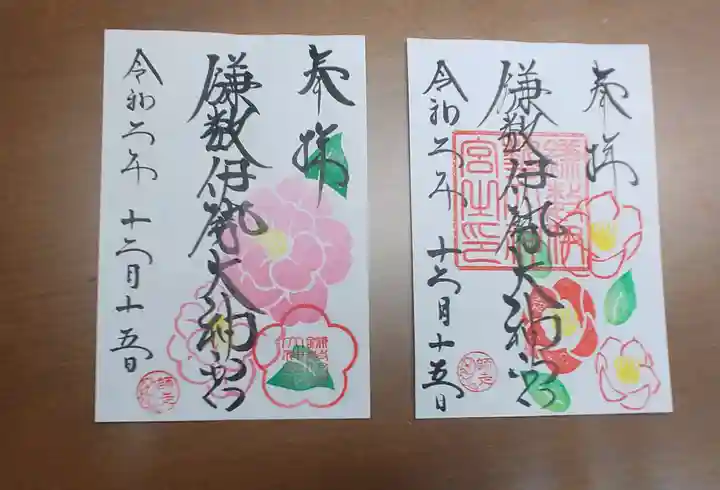 奉拝
鎌数伊勢大神宮
令和六年 十二月十五日
師走
奉拝
鎌数伊勢大神宮
宮之印
令和六年 十二月十五日
師走